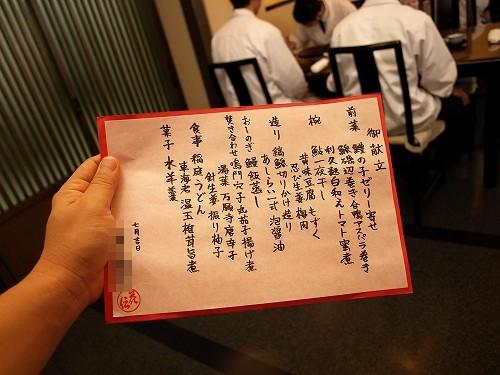 御献立
前菜 鱧の子ゼリー寄せ
鯵磯辺巻き 合鴨アスパラ巻き
利久麩白和え トマト蜜煮
椀 鮎一夜干し
胡麻豆腐 もずく
忍び生姜 梅肉
造り 縞鯵切りかけ造り
あしらい一式 泡醤油
おしのぎ 鰻飯蒸し
焚き合わせ 鳴門穴子 丸茄子揚げ煮
湯葉 万願寺唐辛子
針生姜 振り柚子
食事 稲庭うどん
車海老 温玉 椎茸旨煮
菓子 水羊羹
七月吉日